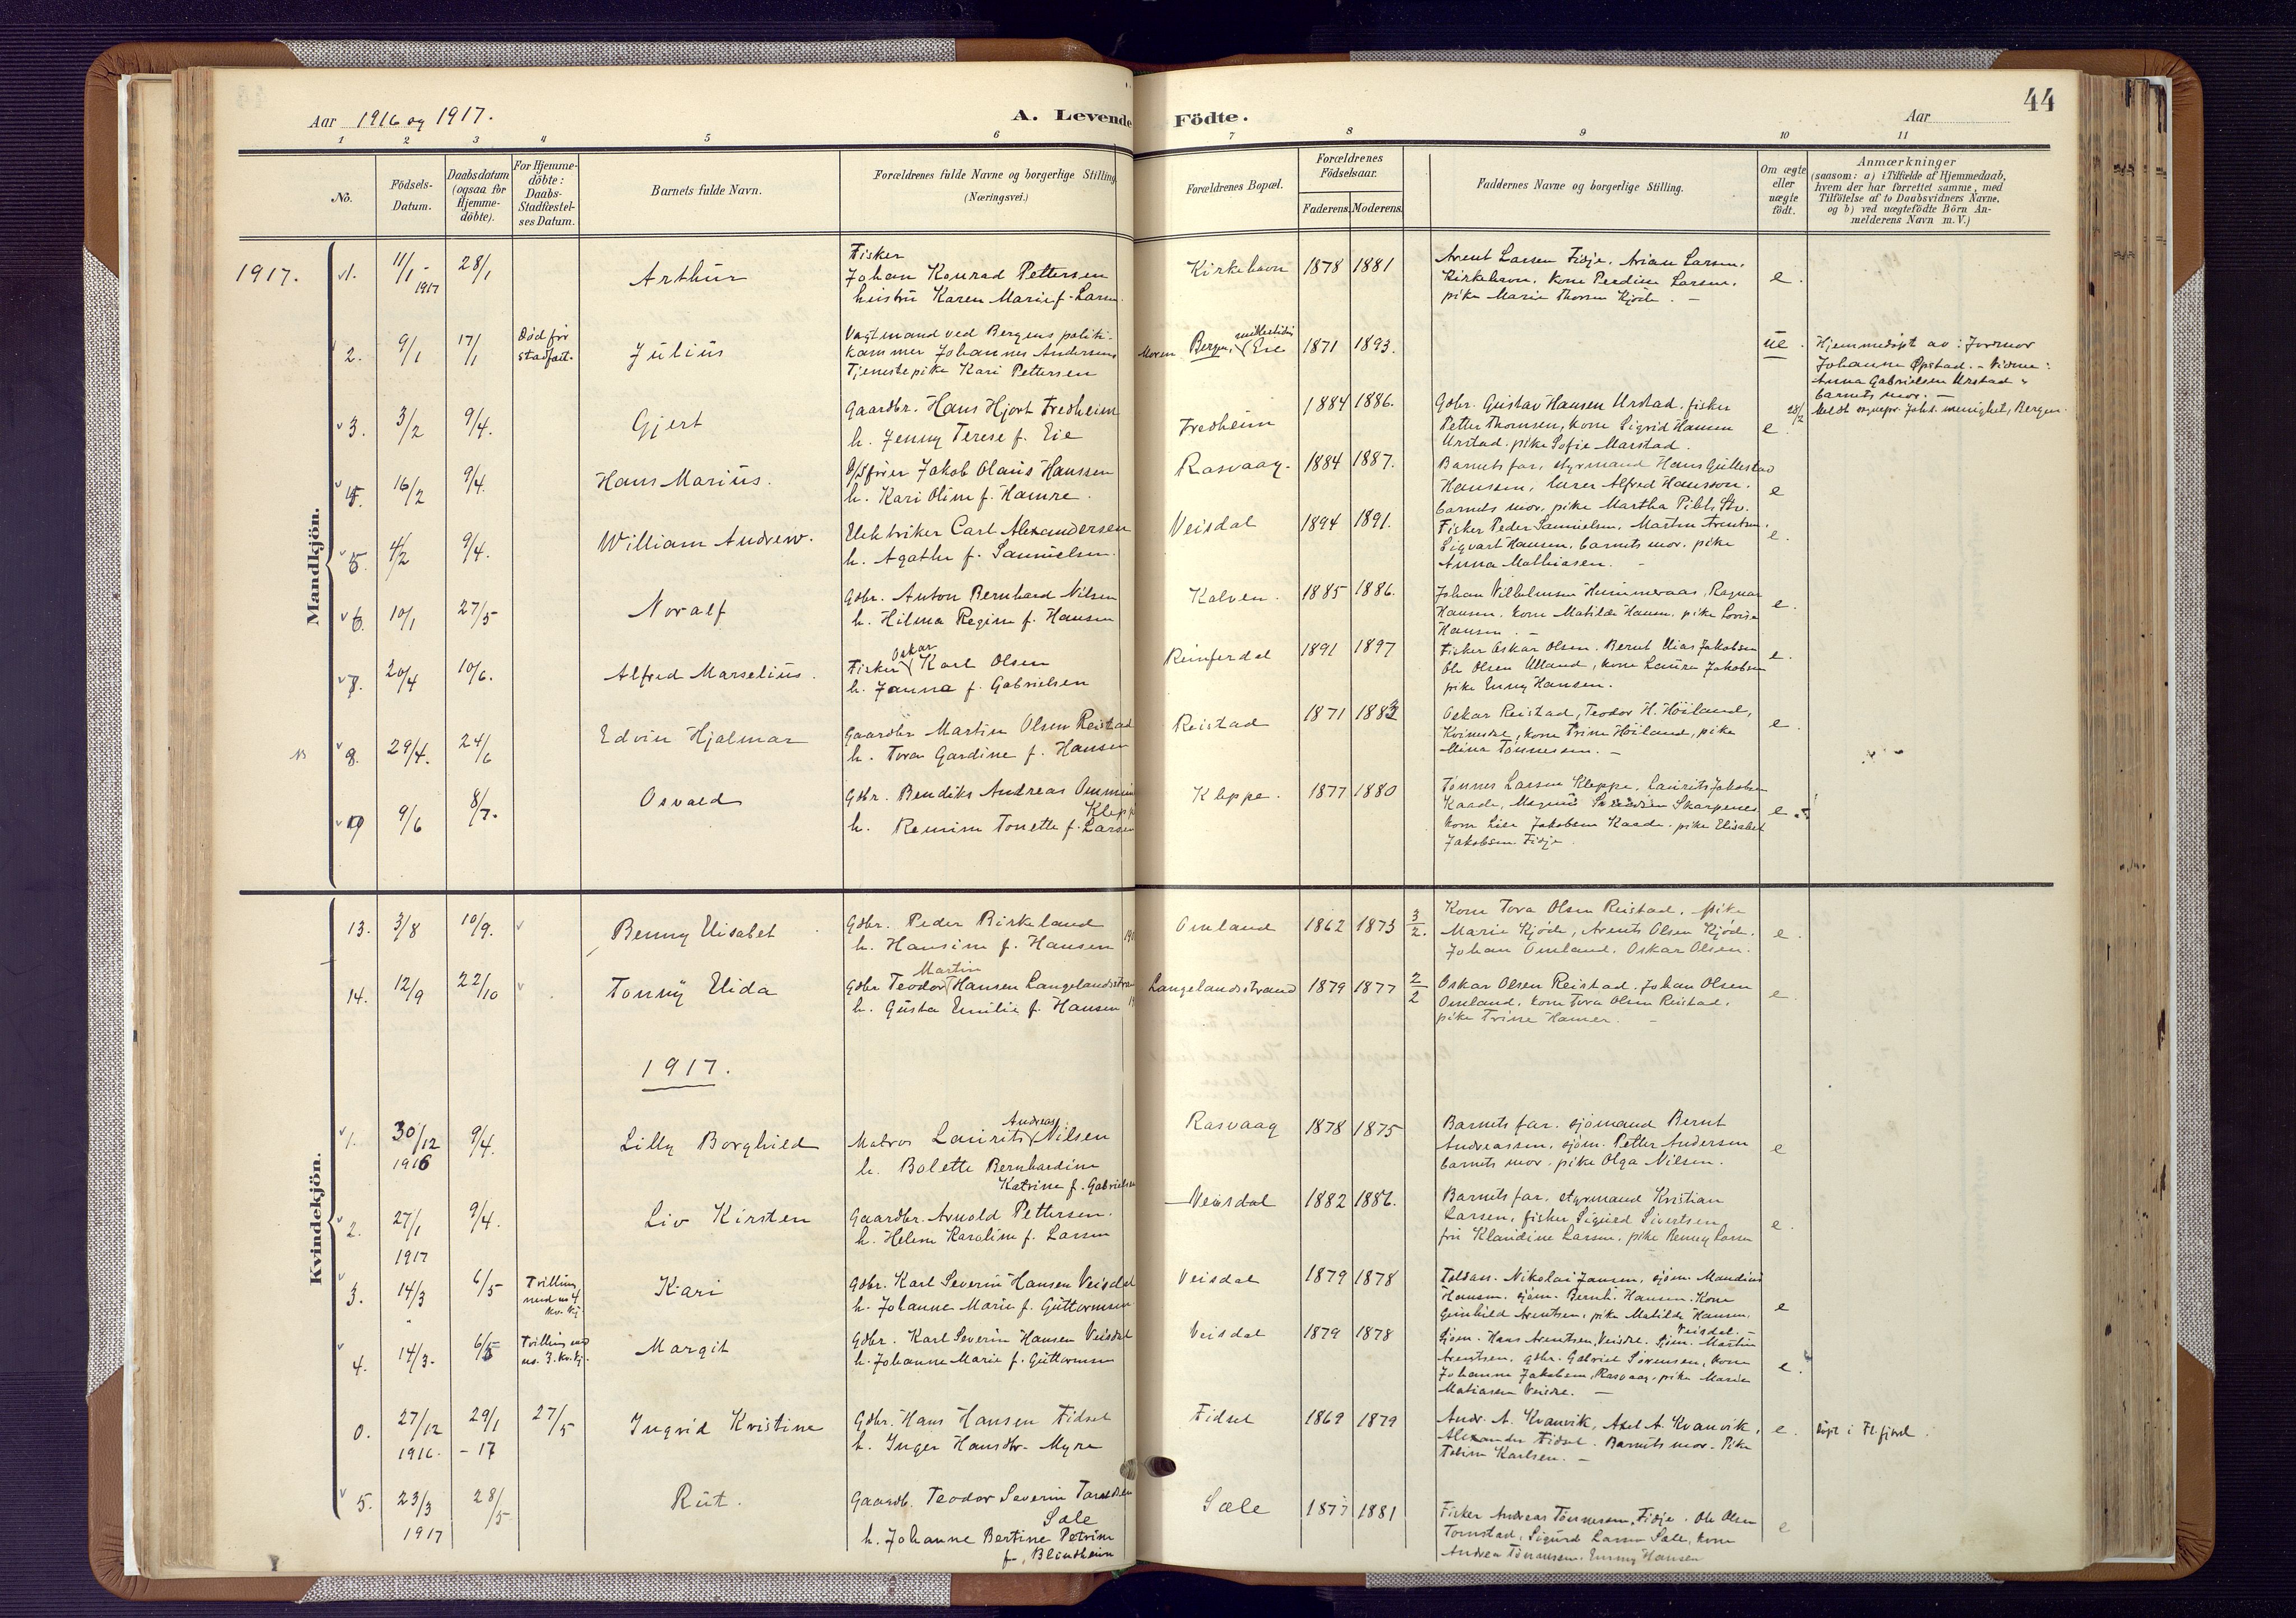 44
Aar 1916 og 1917.
A. Levende Födte.
Aar
1 2 3 4 5 6 7 8 9 10 11
No.
Födsels-Datum.
Daabsdatum (ogsaa for Hjemmedöbte).
For Hjemmedöbte: Daabs-Stadfæstelses Datum.
Barnets fulde Navn.
Forældrenes fulde Navne og borgerlige Stilling (Næringsvei.)
Forældrenes Bopæl.
Forældrenes Födselsaar.
Faderens. Moderens.
Faddernes Navne og borgerlige Stilling.
Om ægte eller uægte födt.
Anmærkninger
(saasom: a) i Tilfælde af Hjemmedaab, hvem der har forrettet samme, med Tilföielse af to Daabsvidners Navne, og b) ved uægtefödte Börn Anmelderens Navn m. V.)
Mandkjön.
1917.
1. 11/1 1917 28/1 Arthur
Fisker
Johan Konrad Pettersen
hustru Karen Marie f. Larsen
Kirkehavn 1878 1881
Arent Larsen Fidje. Arian Larsen,
Kirkehavn. kone Perdine Larsen,
pike Marie Thorsen Kjöde. –
e.
2. 9/1 17/1 Död för stadfæst. Julius
Vagtmand ved Bergens politi-
kammer Johannes Andersen
Tjenestepike Kari Pettersen
Moren Bergen, Eie 1871 1893.
ue.
Hjemmedöpt av: Jordmor
Johanne Øpstad. – Vidne:
Anna Gabrielsen Urstad
barnets mor. –
3. 3/2 9/4. Gjert
Gaardbr. Hans Hjort Fredheim
h. Jenny Terese f. Eie
Fredheim 1884 1886.
Gdbr. Gustav Hansen Urstad, fisker
Petter Thomsen, kone Sigrid Hansen
Urstad. pike Sofie Marstad.
e.
28/2 Meldt sognepr. Joh. menighet, Bergen.
16/2 9/4. Hans Marius.
Jakob Olaus Hanssen
h. Kari Oline f. Hamre.
Rasvaag. 1884 1887.
Barnets far, styrmand Hans Gullestad
Hanssen, lærer Alfred Hansson.
barnets mor, pike Martha
e
5. 4/2 9/4. William Andrew.
Elektriker Carl Alexandersen
h. Agathe f. Samuelsen.
Veisdal 1894 1891.
Fisker Peder Samuelsen, Martin Arentsen,
Sigvart Hansen, barnets mor. pike
Anna Mathiasen. –
e.
6. 10/1 27/5 Noralf
Gdbr. Anton Bernhard Nilsen
h. Hilma Regine f. Hansen
Kalven. 1885 1886.
Johan Vilhelmsen Hummeraas, Ragnar
Hansen. kone Matilde Hansen. pike Lovise
Hansen. –
e.
7. 20/4 10/6. Alfred Marselius.
Fisker Oskar Karl Olsen
h. Janna f. Gabrielsen
Reinferdal 1891 1897
Fisker Oskar Olsen. Bernt Elias Jakobsen
Ole Olsen Ulland, kone Laura Jakobsen
pike Enny Hansen.
e.
8. 29/4. 24/6 Edvin Hjalmar
Gaardbr Martin Olsen Reistad
h. Tora Gardine f. Hansen
Reistad 1871 1883
Oskar Reistad, Teodor H. Höiland,
kone Trine Höiland, pike
Mina Tönnesen. –
e.
9 9/6 8/7. Osvald
Gdbr. Bendiks Andreas
Kleppe
h. Tonette f. Larsen
Kleppe. 1877 1880
Tönnes Larsen Kleppe, Laurits Jakobsen
Kaade, Magnus Skarpenes
kone Lise Jakobsen Kaade. pike Elisabet
Jakobsen Fidje.
e.
Kvindekjön.
13. 3/8 10/9. Benny Elisabet
Gdbr. Peder Birkeland
h. Hansine f. Hansen
Omland 1862 1873 3/2.
Kone Tora Olsen Reistad. pike
Marie Kjöde, Arents Olsen Kjöde.
Johan Omland. Oskar Olsen.
e.
14. 12/9 22/10 Tonny Elida
Gdbr Teodor Martin Hansen Langelandsstrand
h. Gusta Emilie f. Hansen
Langelandsstrand 1879 1877 2/2
Oskar Olsen Reistad. Johan Olsen
Omland. kone Tora Olsen Reistad.
pike Trine Hamer. –
e.
1917.
1. 30/12 1916 9/4. Lilly Borghild
Matros Laurits Andreas Nilsen
h. Bolette Bernhardine
Katrine f. Gabrielsen
Rasvaag 1878 1875
Barnets far. sjömand Bernt
Andreassen, sjöm. Petter Andersen
barnets mor. pike Olga Nilsen.
e
2. 27/1 1917 9/4. Liv Kirsten
Gaardbr. Arnold Pettersen.
h. Helene Karoline f. Larsen
Veisdal 1882 1886.
Barnets far. styrmand Kristian
Larsen, fisker Sigurd Sivertsen,
fru Klaudine Larsen. pike Benny Larsen
e.
3. 14/3 6/5 Tvilling med no 4 kv. kj Kari
Gdbr. Karl Severin Hansen Veisdal
h. Johanne Marie f. Guttormsen
Veisdal 1879 1878
Toldass. Nikolai Jansen, sjöm. Mandius
Hansen. sjöm. Bernh. Hansen. Kone
Gunhild Arentsen, pike Matilde Hansen,
Veisdal. –
e
4. 14/3. 6/5 Tvilling med no. 3. kv. kj. Margit
Gdbr. Karl Severin Hansen Veisdal
h. Johanne Marie f. Guttormsen
Veisdal 1879 1878
Sjöm. Hans Arentsen, Veisdal. Sjöm. Martin
Arentsen. gdbr. Gabriel Sörensen, kone
Johanne Jakobsen, Rasvaag, pike Marie
Matiasen Veisdal. –
e.
0. 27/12 1916. 29/1 – 17 27/5 Ingrid Kristine
Gdbr. Hans Hansen Fidsel
h. Inger Hansdtr. Myra
Fidsel 1869 1879
Andr. A. Kvanvik, Axel A. Kvanvik,
Alexander Fidsel. Barnets mor. Pike
Karlsen. –
e.
döpt i Flfjord.
5. 23/3 1917 28/5 Rut.
Gaardb. Teodor Severin
Sæle
h. Johanne Bertine Petrine
f. Blindheim
Sæle 1877 1881
Fisker Andreas Tönnesen, Fidje. Ole Olsen
Tornstad, Sigurd Larsen Sæle, kone
Andrea Tönnesen. Enny Hansen
e